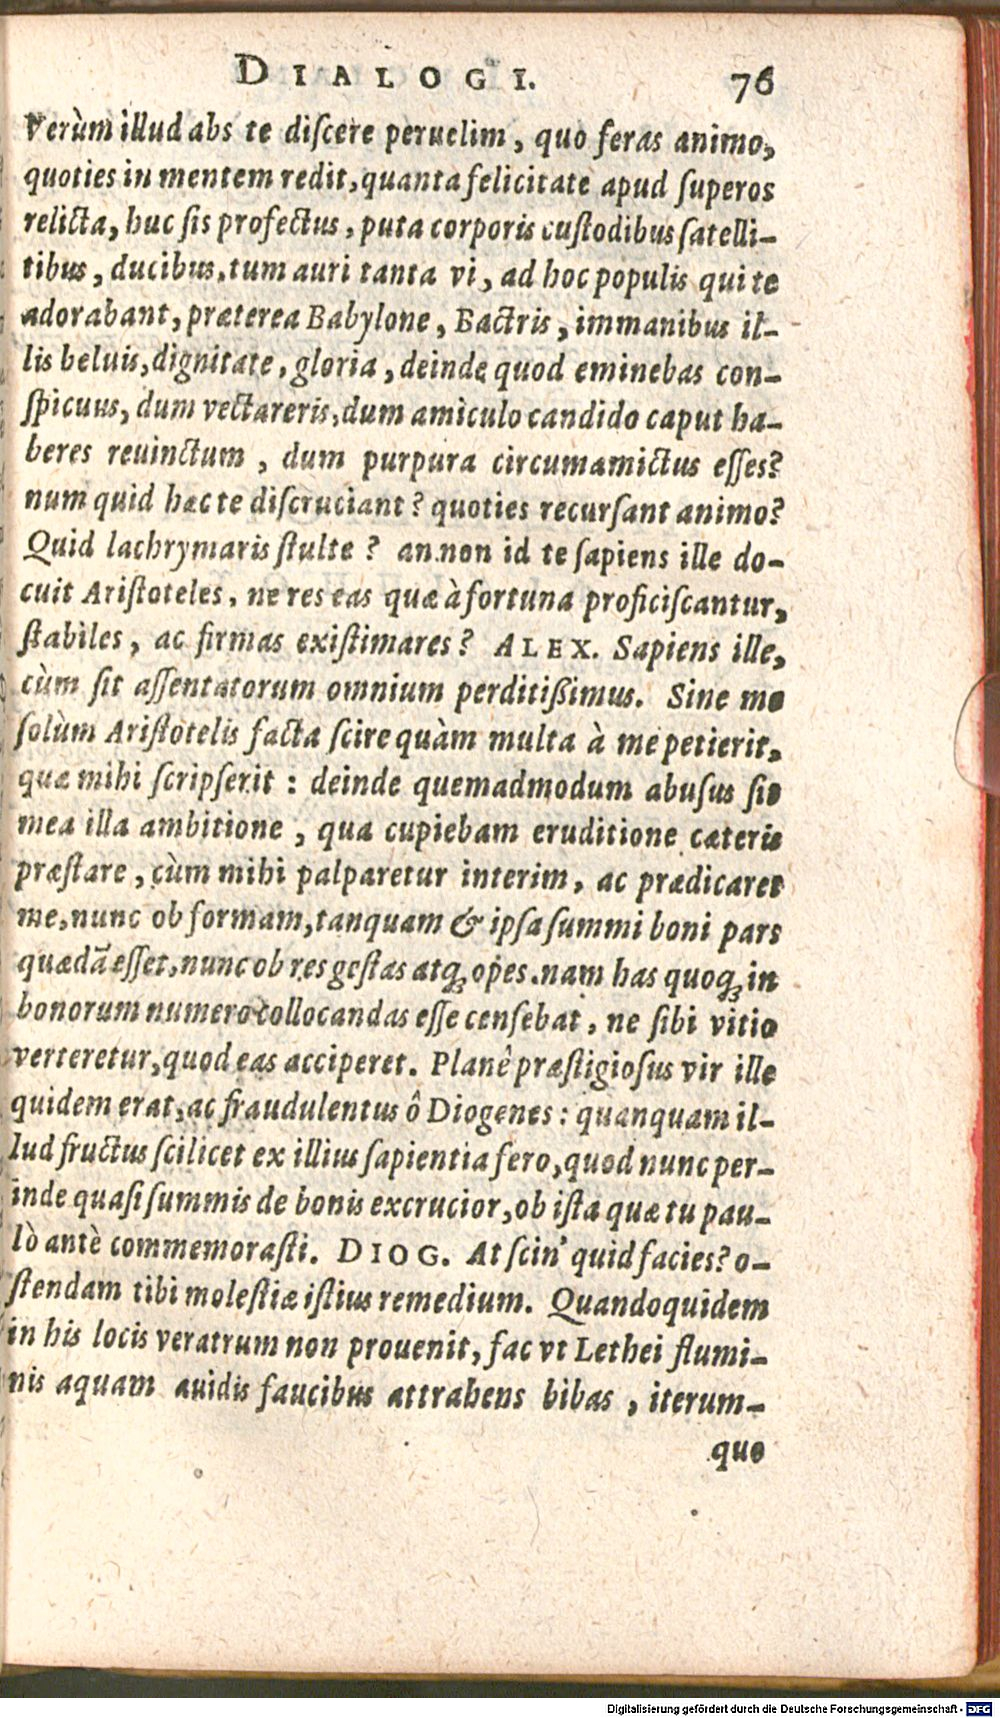 DIALOGI. 76
Verùm illud abs te discere peruelim, quo feras animo,
quoties in mentem redit, quanta felicitate apud superos
relicta, huc sis profectus, puta corporis custodibus satelli-
tibus, ducibus, tum auri tanta vi, ad hoc populis qui te
adorabant, præterea Babylone, Bactris, immanibus il-
lis beluis, dignitate, gloria, deinde quod eminebas con-
spicuus, dum vectareris, dum amiculo candido caput ha-
beres reuinctum, dum purpura circumamictus esses?
num quid hæc te discruciant? quoties recursant animo?
Quid lachrymaris stulte? an non id te sapiens ille do-
cuit Aristoteles, ne res eas quæ à fortuna proficiscantur,
stabiles, ac firmas existimares? ALEX. Sapiens ille,
cùm sit assentatorum omnium perditißimus. Sine me
solùm Aristotelis facta scire quàm multa à me petierit,
quæ mihi scripserit: deinde quemadmodum abusus sit
mea illa ambitione, qua cupiebam eruditione cæteris
præstare, cùm mihi palparetur interim, ac prædicaret
me, nunc ob formam, tanquam & ipsa summi boni pars
quædā esset, nunc ob res gestas atq; opes. nam has quoq; in
bonorum numero collocandas esse censebat, ne sibi vitio
verteretur, quod eas acciperet. Planê præstigiosus vir ille
quidem erat, ac fraudulentus ô Diogenes: quanquam il-
lud fructus scilicet ex illius sapientia fero, quod nunc per-
inde quasi summis de bonis excrucior, ob ista quæ tu pau-
lò antè commemorasti. DIOG. At scin' quid facies? o-
stendam tibi molestiæ istius remedium. Quandoquidem
in his locis veratrum non prouenit, fac vt Lethei flumi-
nis aquam auidis faucibus attrahens bibas, iterum-
que
Digitalisierung gefördert durch die Deutsche Forschungsgemeinschaft - DFG